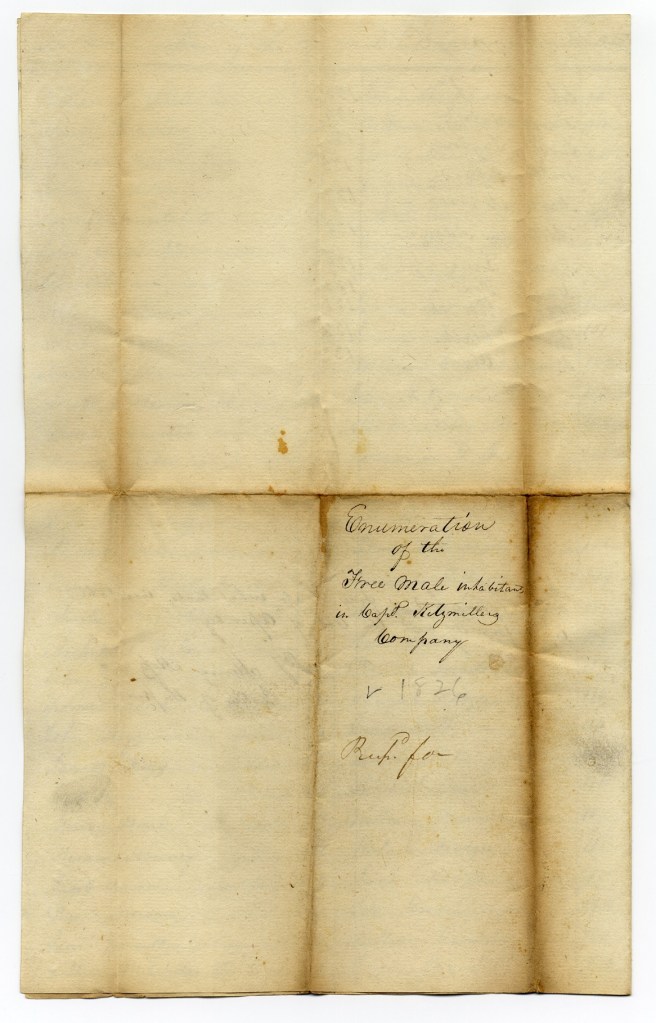 Enumeration
of the
Free Male inhabitans
in Capt. Kitzmillers
Company
v 1826
for